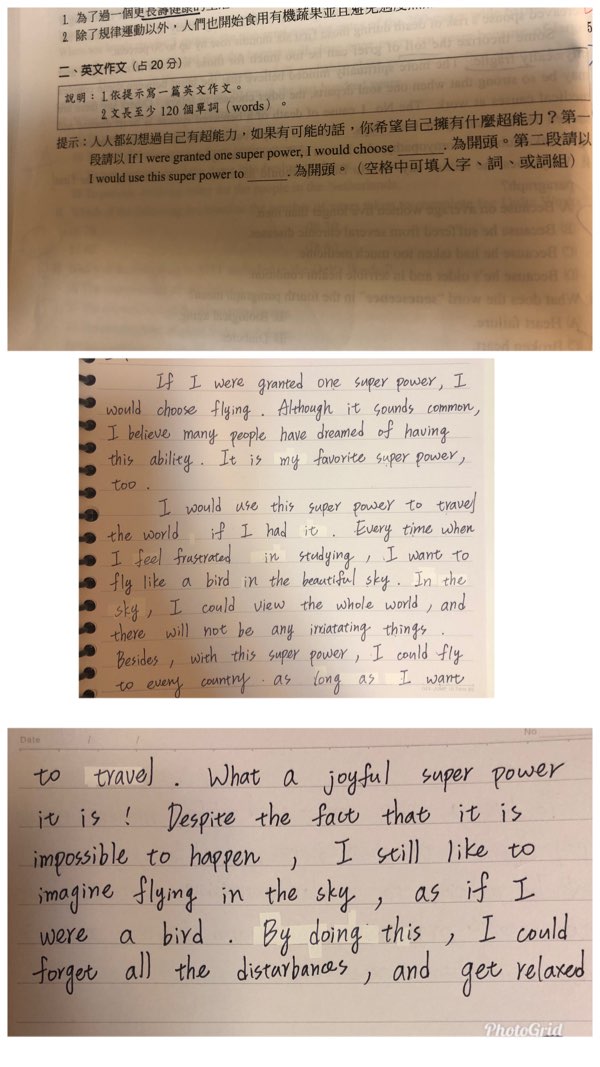 1. 為了過一個更長壽健康的生活
2. 除了規律運動以外，人們也開始食用有機蔬果並且避免過度
二、英文作文（占 20 分）
說明：1.依提示寫一篇英文作文。
2.文長至少 120 個單詞（words）。
提示：人人都幻想過自己有超能力，如果有可能的話，你希望自己擁有什麼超能力？第一
段請以 If I were granted one super power, I would choose ______. 為開頭。第二段請以
I would use this super power to ______. 為開頭。（空格中可填入字、詞、或詞組）
If I were granted one super power, I
would choose flying. Although it sounds common,
I believe many people have dreamed of having
this ability. It is my favorite super power,
too.
I would use this super power to travel
the world if I had it. Every time when
I feel frustrated in studying, I want to
fly like a bird in the beautiful sky. In the
sky, I could view the whole world, and
there will not be any irriatating things.
Besides, with this super power, I could fly
to every country as long as I want
Date / /
No
to travel. What a joyful super power
it is! Despite the fact that it is
impossible to happen, I still like to
imagine flying in the sky, as if I
were a bird. By doing this, I could
forget all the distarbances, and get relaxed
PhotoGrid